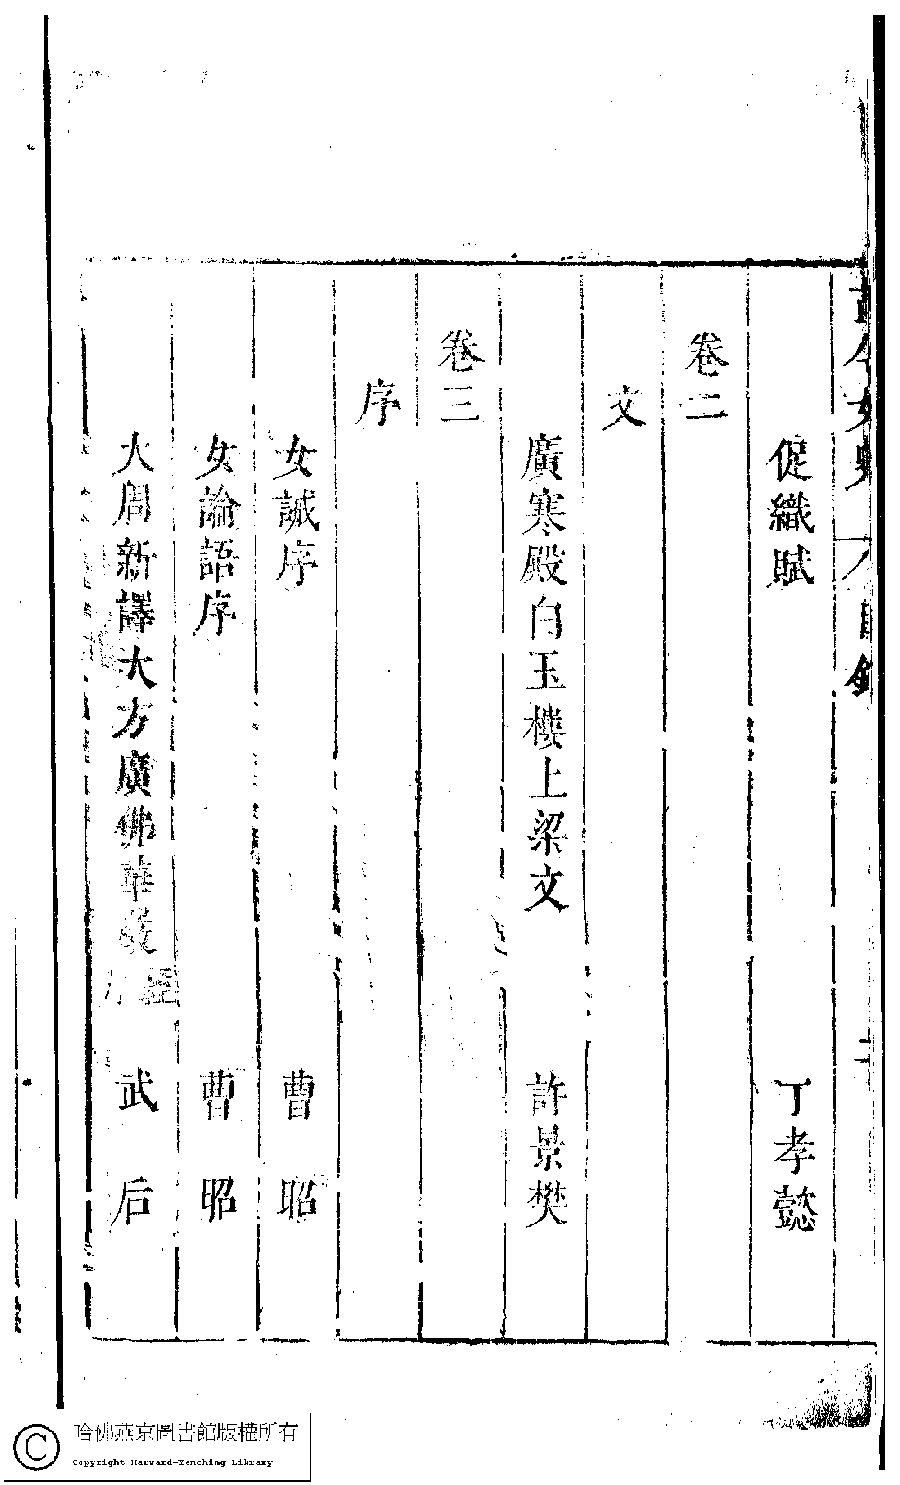 古今女史 目錄 二
促織賦 丁孝懿
卷二
文
廣寒殿白玉樓上梁文 許景樊
卷三
序
女誡序 曹昭
女論語序 曹昭
大周新譯大方廣佛華嚴經序 武后
哈佛燕京圖書館版權所有
Copyright Harvard-Yenching Library